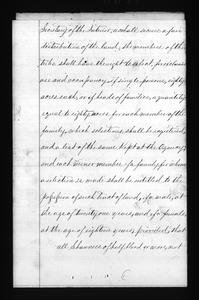 Secretary of the Interior, as shall secure a fair
distribution of the land, the members of the
tribe shall have the right to select, for exclusive
use and occupancy, if single persons, eighty
acres each, or if heads of families, a quantity
equal to eighty acres for each member of the
family, which selections shall be registered,
and a list of the same kept at the Agency;
and each minor member of a family, for whom
a selection is made shall be entitled to the
possession of such tract of land, if a male, at
the age of twenty one years, and if a female,
at the age of eighteen years; provided, that
all Shawnees of half blood or more, not